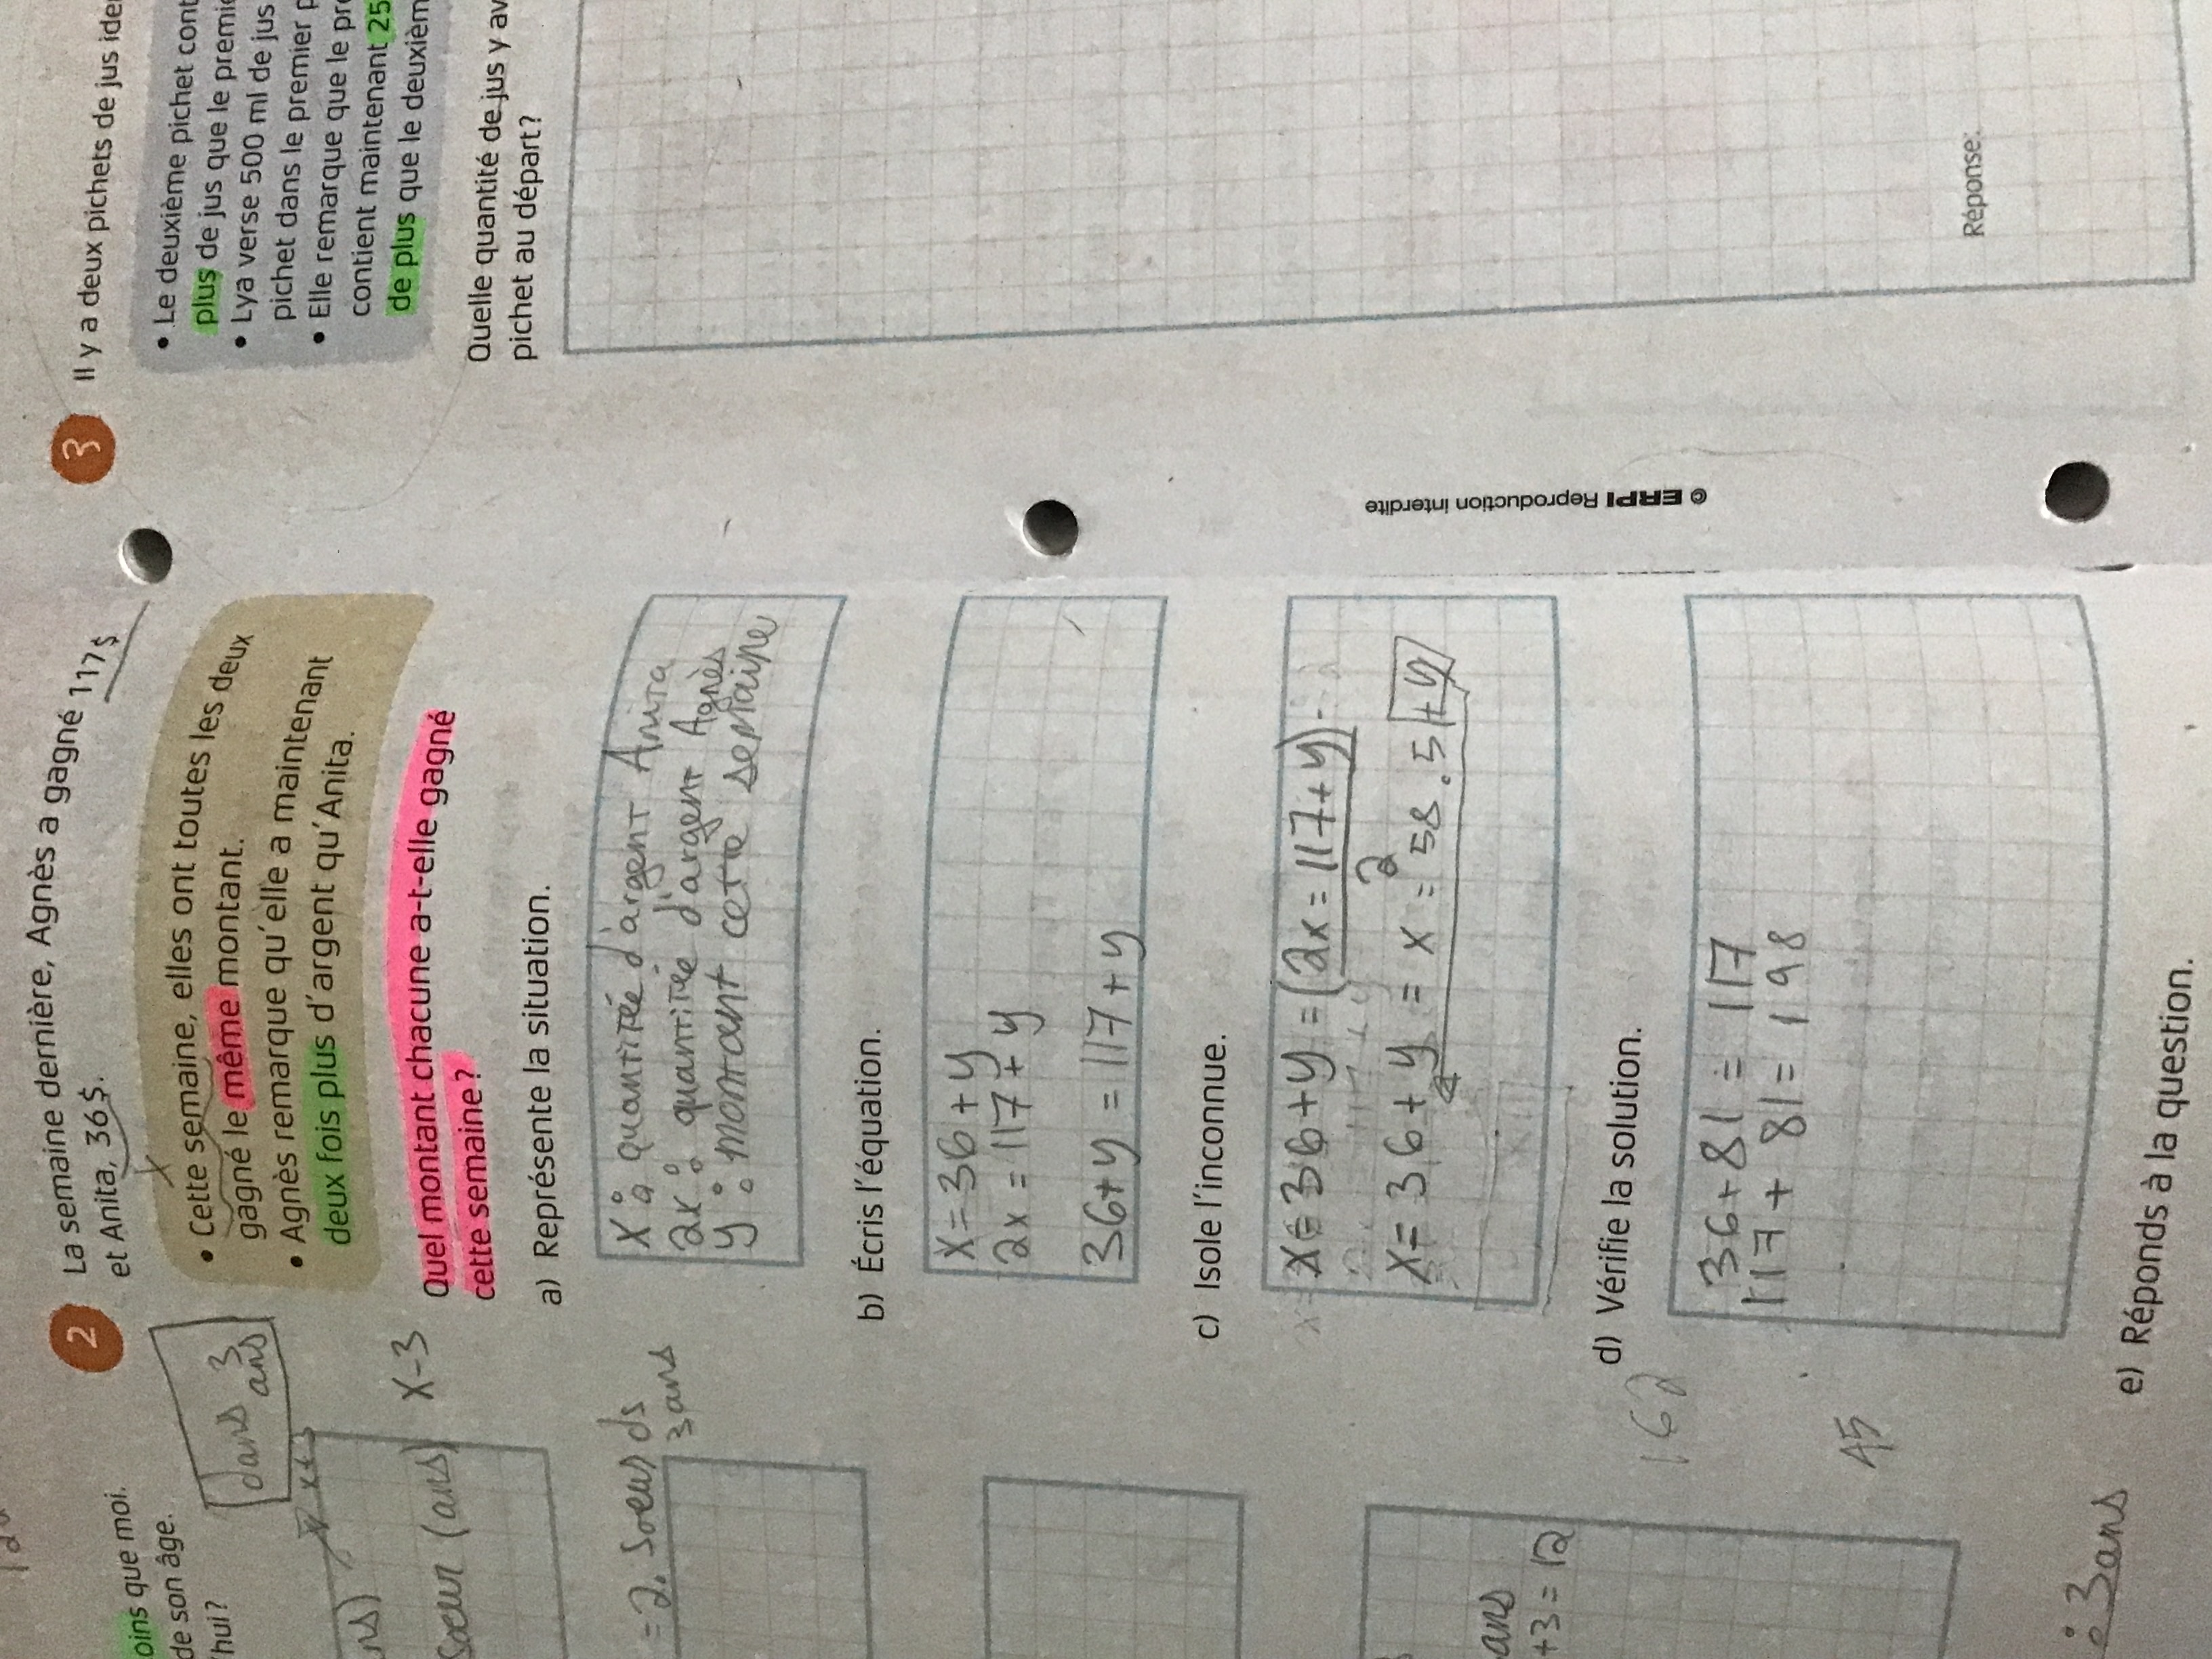 oins que moi.
de son âge.
'hui?
dans 3
ans
x-3
Soeur (ans)
= 2. Soeur ds
3 ans
162
45
ans
+3 = 12
: 3ans
2 La semaine dernière, Agnès a gagné 117$
et Anita, 36$.
x
• Cette semaine, elles ont toutes les deux
gagné le même montant.
• Agnès remarque qu'elle a maintenant
deux fois plus d'argent qu'Anita.
Quel montant chacune a-t-elle gagné
cette semaine?
a) Représente la situation.
x : quantitée d'argent Anita
2x : quantitée d'argent Agnès
y : montant cette semaine
b) Écris l'équation.
x = 36 + y
2x = 117 + y
36 + y = 117 + y
c) Isole l'inconnue.
x = 36 + y = (2x = 117 + y)
2
x = 36 + y = x = 58.5 + y
d) Vérifie la solution.
36 + 81 = 117
117 + 81 = 198
e) Réponds à la question.
© ERPI Reproduction interdite
3 Il y a deux pichets de jus iden
• Le deuxième pichet cont
plus de jus que le premie
• Lya verse 500 ml de jus
pichet dans le premier p
• Elle remarque que le pre
contient maintenant 25
de plus que le deuxièm
Quelle quantité de jus y av
pichet au départ?
Réponse: